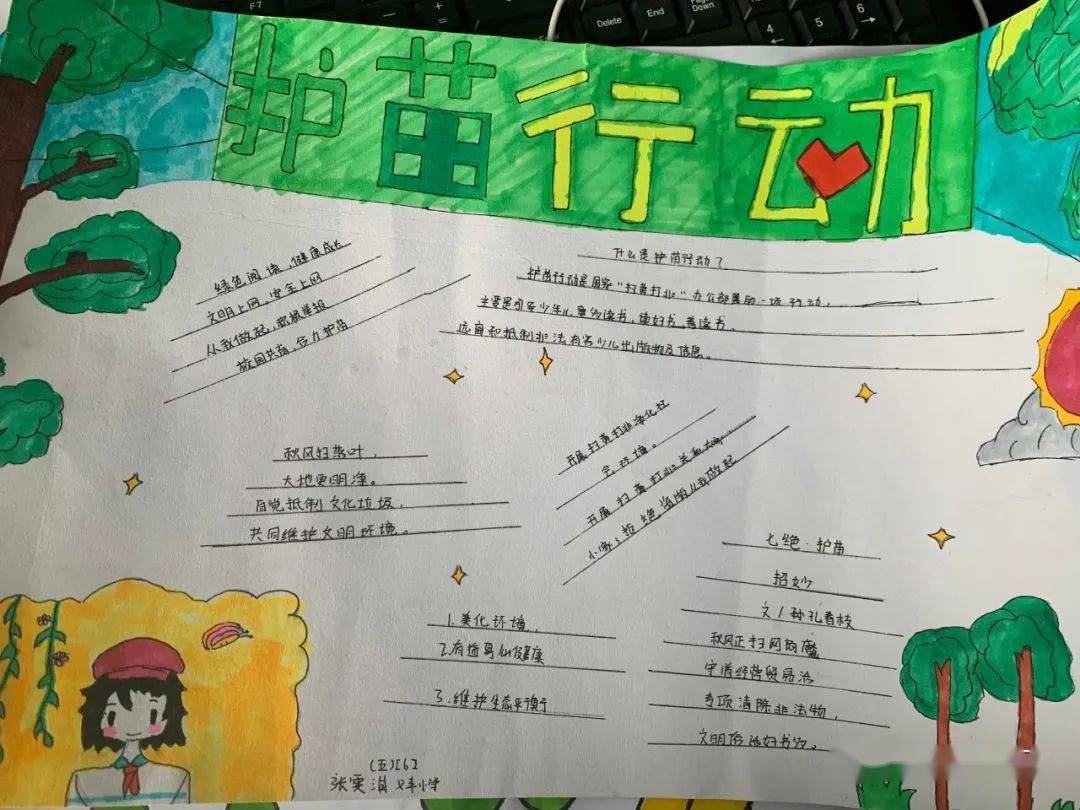 F7
Delete
End
Down
4
5
6
护苗行动
绿色阅读,健康成长
文明上网,安全上网
从我做起,积极举报
校园共育,合力护苗
什么是护苗行动?
护苗行动是国家"扫黄打非"办公部署的一项行动,
主要是引导少年儿童多读书,读好书,善读书,
远离和抵制非法有害少儿出版物及信息。
秋风扫落叶,
大地更明净。
自觉抵制文化垃圾,
共同维护文明环境。
开展扫黄打非净化社
会环境。
开展扫黄打非
拒绝盗版从我做起
七绝·护苗
招妙
文/孙孔春枝
秋风正扫网
守道经营贸易活
专项清除非法物,
文明俗 好书多。
1.美化环境,
2.有益身心健康
3.维护生态平衡
(五)[6]
张雯 小学